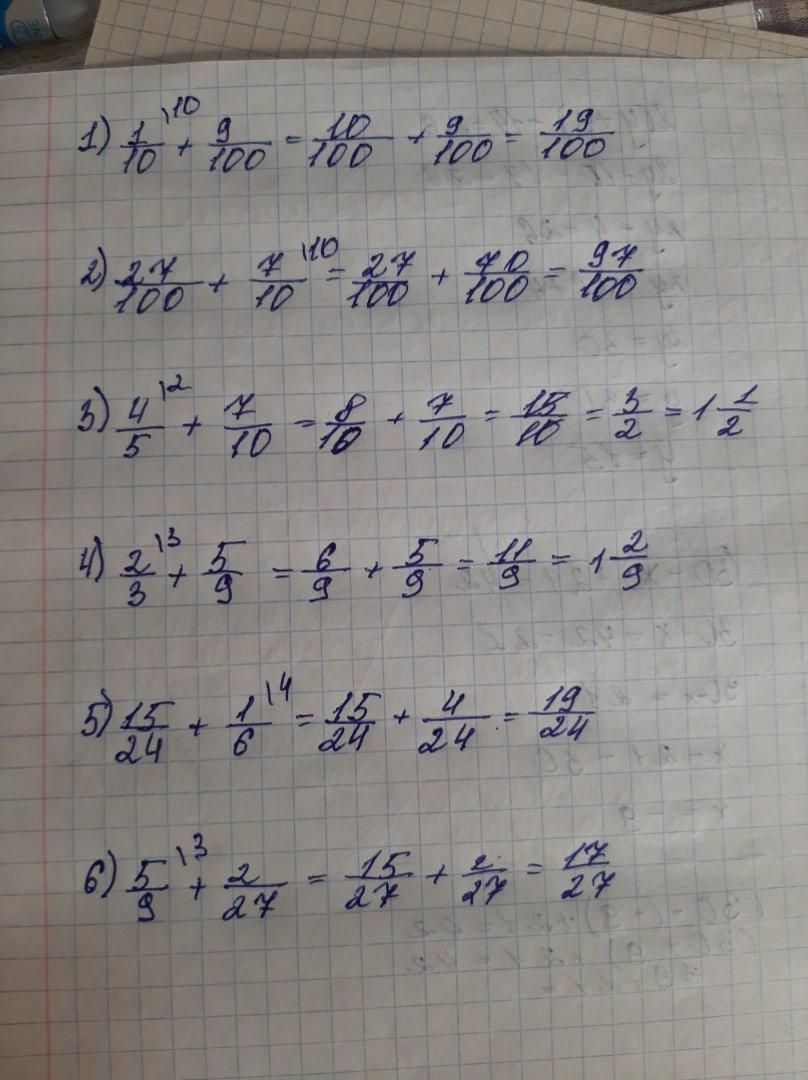 1) 1/10 \10 + 9/100 = 10/100 + 9/100 = 19/100
2) 27/100 + 7/10 \10 = 27/100 + 70/100 = 97/100
3) 4/5 \2 + 7/10 = 8/10 + 7/10 = 15/10 = 3/2 = 1 1/2
4) 2/3 \3 + 5/9 = 6/9 + 5/9 = 11/9 = 1 2/9
5) 15/24 + 1/6 \4 = 15/24 + 4/24 = 19/24
6) 5/9 \3 + 2/27 = 15/27 + 2/27 = 17/27